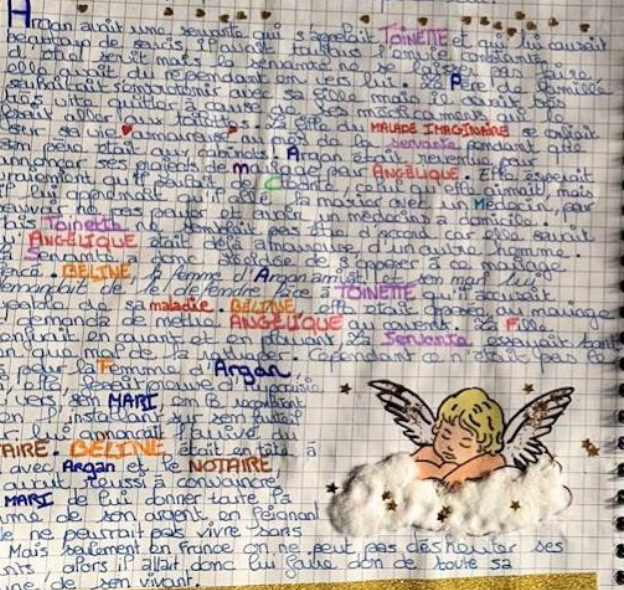 Argan avait une servante qui s'appelait TOINETTE et qui lui causait
beaucoup de soucis, il avait toujours l'envie constante
d' servit mais la servante ne se laissée pas faire,
elle avait du répendant en vers lui. Le Père de famille
souhaitait s'entretenir avec sa fille mais il devait
très vite quitter à cause de ses médicaments qui le
fesait aller aux toilettes. La fille du MALADE IMAGINAIRE se confiait
sur sa vie amoureuse au près de la servante pendant que
son père était aux cabinets. Argan était revenue pour
annoncer ses projets de Mariage pour ANGÉLIQUE. Elle espérait
vraiment qu'il parlait de Cléante, celui qu'elle aimait, mais
il lui apprennait qu'il allé la marier avec un Médecin, pour
pouvoir ne pas payer et avoir un médecin à domicile.
Mais Toinette ne semblait pas être d'accord car elle savait
qu'ANGÉLIQUE était déjà amoureuse d'un autre homme.
La Servante a donc décidée de s'opposer à ce mariage
BÉLINE, la femme d'Argan arrivait et son mari lui
demandait de le défendre face à TOINETTE qu'il accusait
coupable de sa maladie. BÉLINE elle était opposée au mariage
demanda de mettre ANGÉLIQUE au couvent. La Fille
s'enfuyait en courant et en pleurant, la Servante essayait tant
bien que mal de la rattraper. Cependant ce n'était pas la
pour la Femme d'Argan,
elle fesait preuve d'hypocrisie
vers son MARI en le réconfortant
en l'installant sur son fauteuil
lui annonçait l'arrivé du
NOTAIRE. BÉLINE était en tête à
avec Argan et le NOTAIRE
avait réussi à convaincre
MARI de lui donner toute la
somme de son argent en feignant
qu'elle ne pourrait pas vivre sans
Mais seulement en France on ne peut pas déshériter ses
enfants, alors il allait donc lui faire don de toute sa
de son vivant.